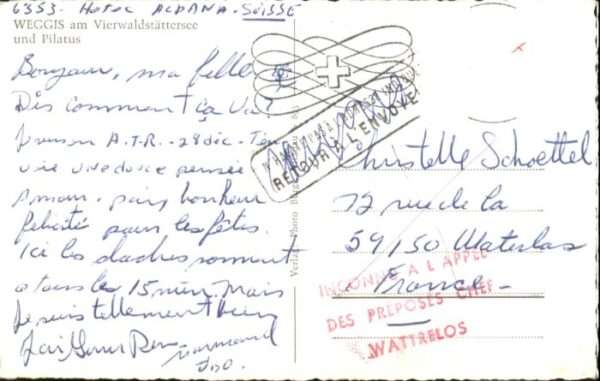 6353. Hotel ALPANA. SUISSE
WEGGIS am Vierwaldstättersee
und Pilatus
Bonjour, ma fille
Dis comment ça va?
A.T.R. - 28 dic. -
une douce pensée
amour, paix, bonheur
félicité pour les fêtes.
Ici les cloches sonnent
a tous les 15 min. Mais
je suis tellement bien
RETOUR A L'ENVOYEUR
Verlag Photo
Christelle Schoettel
12 rue de la
59150 Waterlos
France
INCONNU A L APPEL
DES PREPOSES CHEF
WATTRELOS